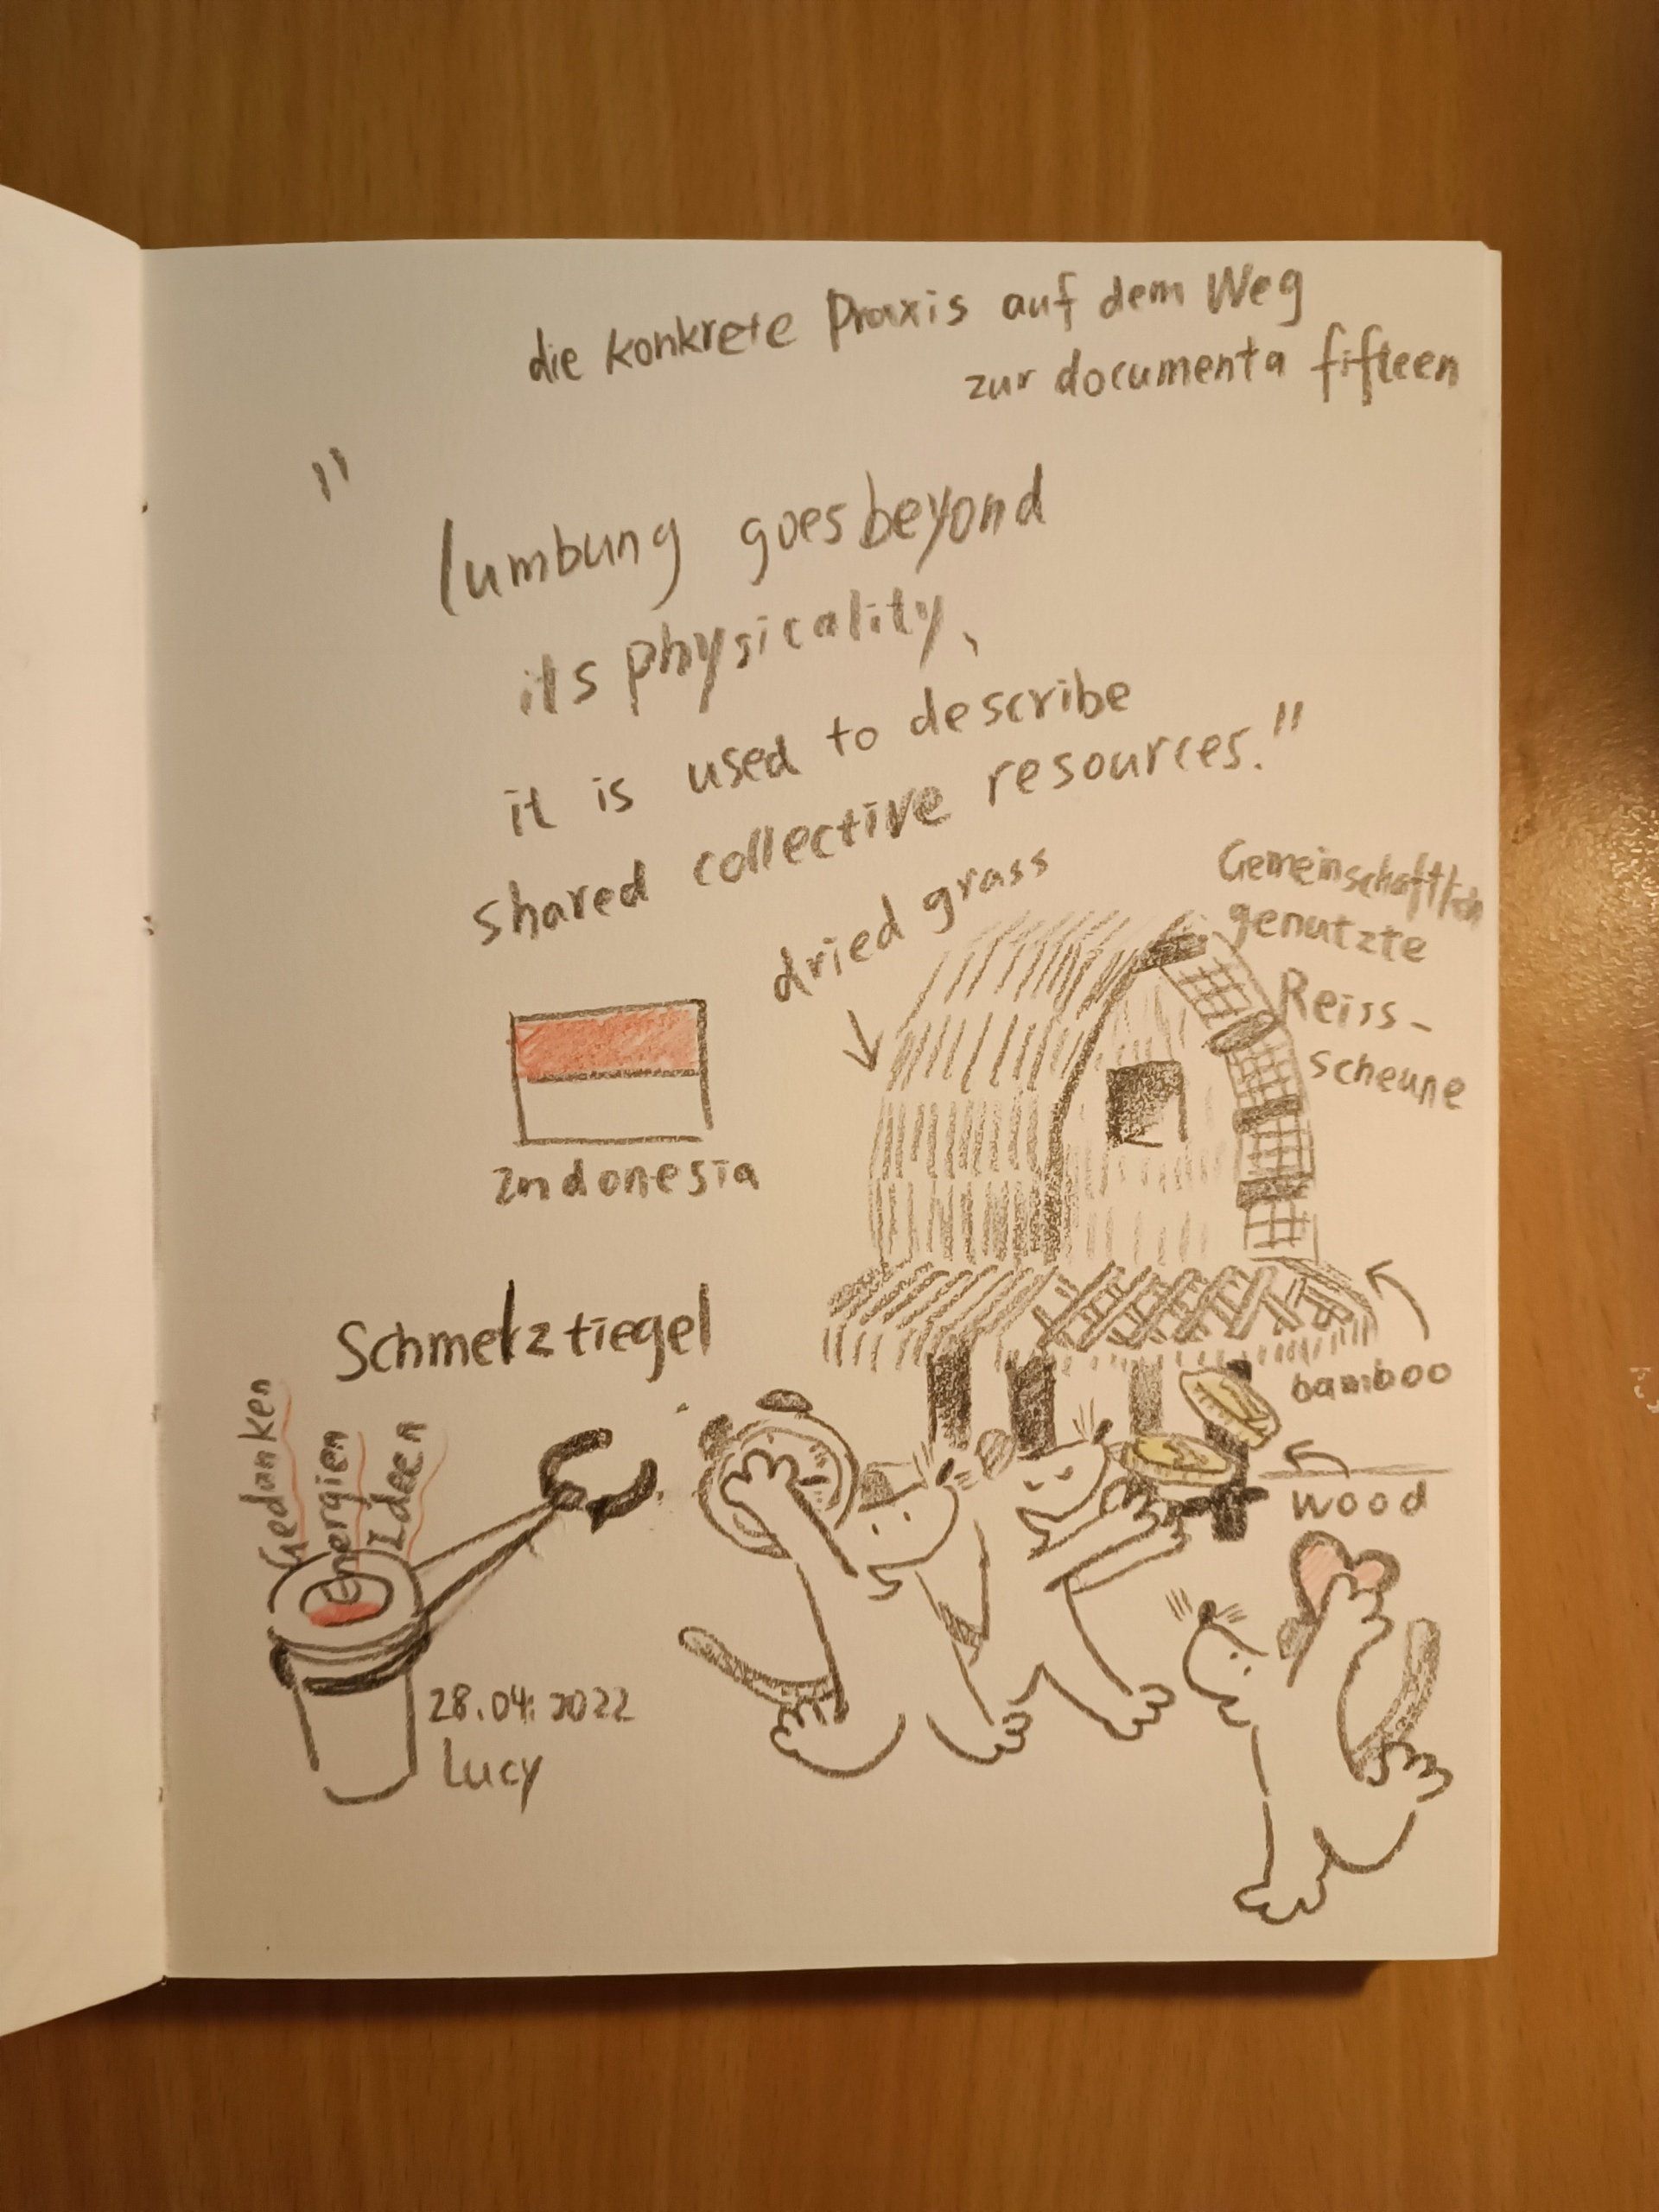 die konkrete Praxis auf dem Weg
zur documenta fifteen
"
lumbung goes beyond
its physicality,
it is used to describe
shared collective resources."
dried grass
Gemeinschaftlich
genutzte
Reiss-
scheune
Indonesia
bamboo
Schmelztiegel
wood
Gedanken
Energien
Ideen
28.04.2022
Lucy